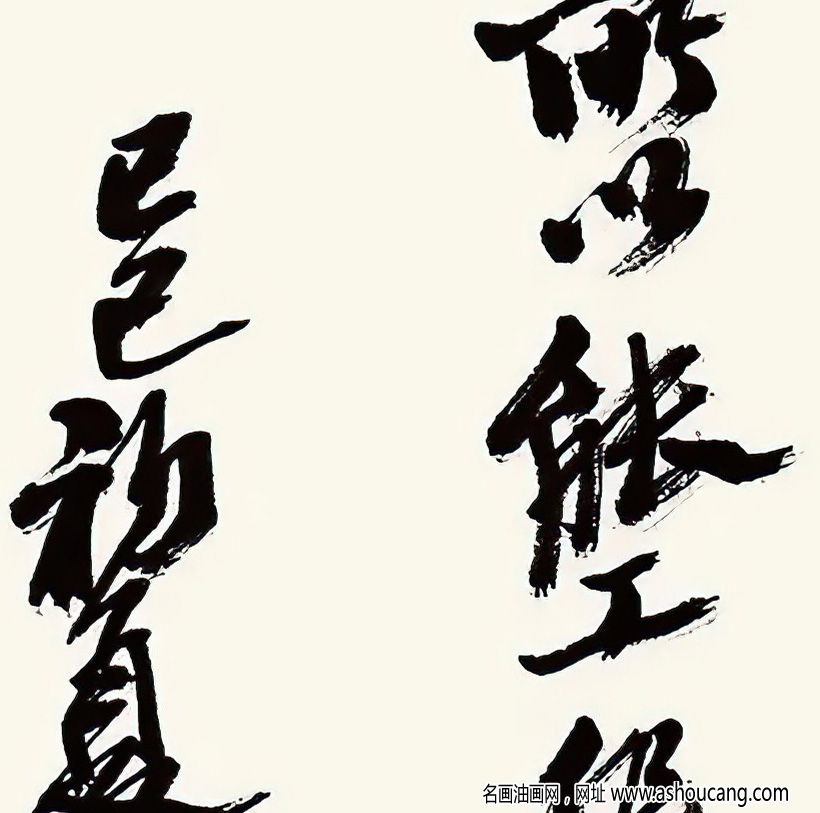 所以能工
己巳初夏
名画油画网，网址 www.ashoucang.com